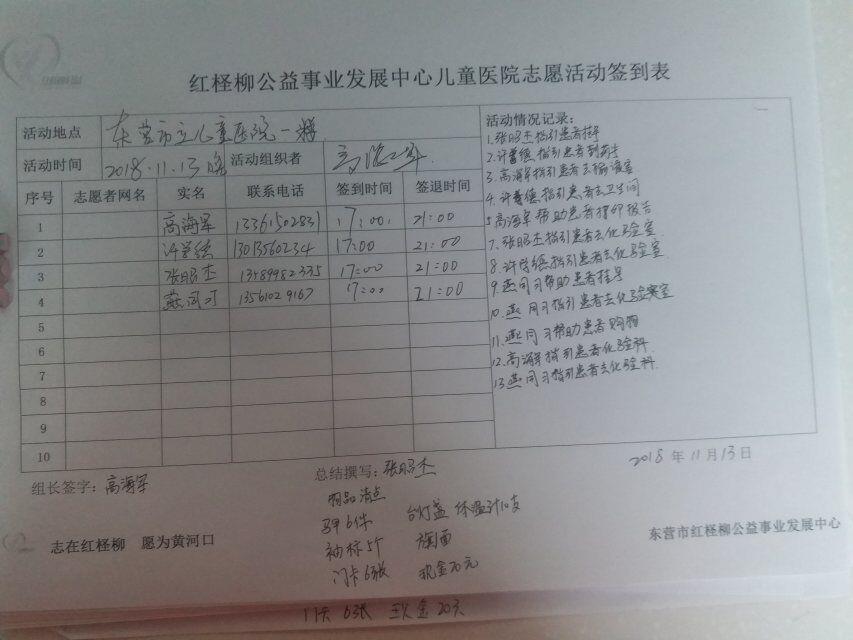 红柽柳公益事业发展中心儿童医院志愿活动签到表
活动地点 东营市立儿童医院一楼
活动时间 2018.11.13晚 活动组织者 高海军
序号 志愿者网名 实名 联系电话 签到时间 签退时间
1 高海军 13361502831 17:00 21:00
2 许学德 13013560234 17:00 21:00
3 张昭杰 13589982335 17:00 21:00
4 燕同习 13561029167 17:00 21:00
5
6
7
8
9
10
活动情况记录:
1.张昭杰指引患者挂号
2.许学德指引患者到药房
3.高海军指引患者去输液室
4.许学德指引患者去卫生间
5高海军帮助患者打印报告
7.张昭杰指引患者去化验室
8.许学德指引患者去化验室
9.燕同习帮助患者挂号
10.燕同习指引患者去化验室
11.燕同习帮助患者购物
12.高海军指引患者化验科
13.燕同习指引患者去化验科
组长签字:高海军
总结撰写:张昭杰
2018年11月13日
物品清点
马甲6件 台灯1盏 体温计10支
袖标5个 旗1面
门卡6张 现金20元
志在红柽柳 愿为黄河口
东营市红柽柳公益事业发展中心
门卡 6张 现金 20元